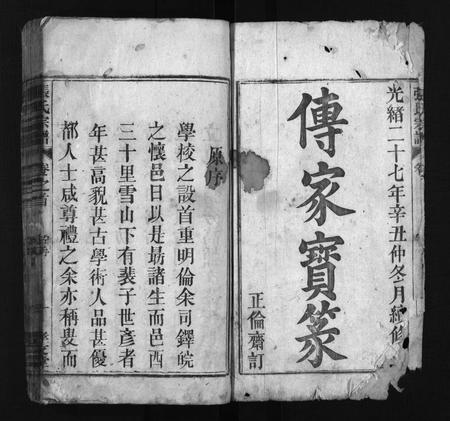 光緒二十七年辛丑仲冬月續修
傳家寶篆
正倫齋訂
原序
學校之設首重明倫余司鐸皖
之懷邑日以是勗諸生而邑西
三十里雪山下有裴子世彥者
年甚高貌甚古學術人品甚優
都人士咸尊禮之余亦稱嘆而
張氏宗譜
卷之首